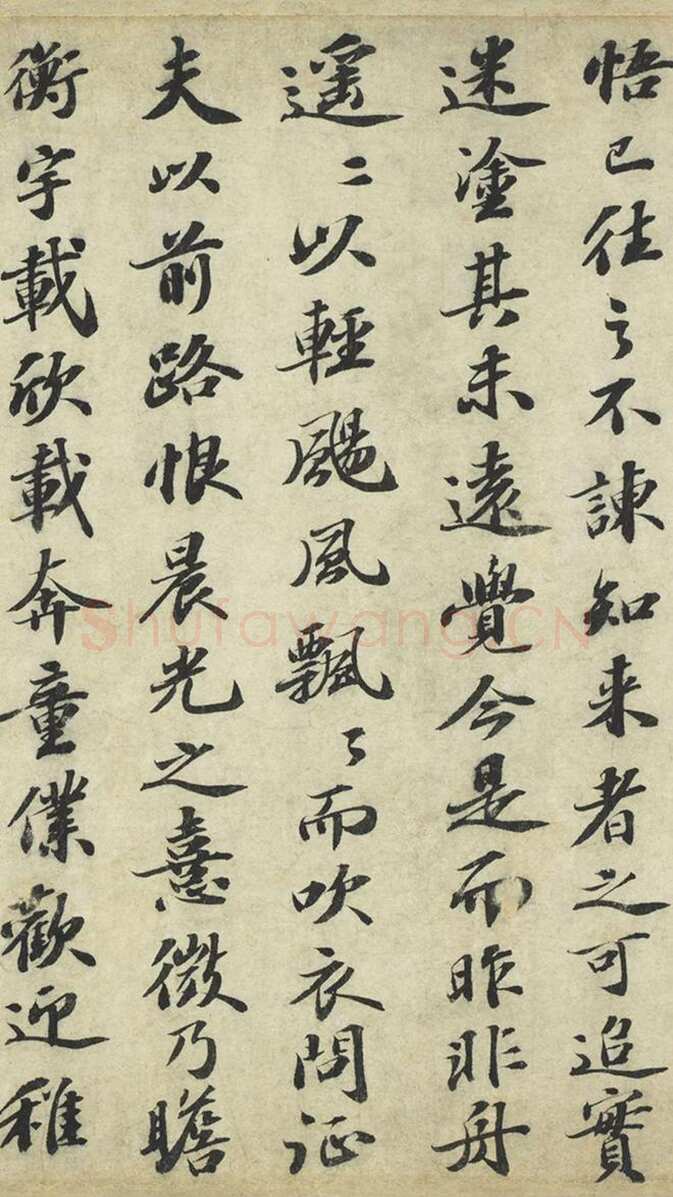 悟已往之不諫知来者之可追實
迷塗其未遠覺今是而昨非舟
遥〻以輕颺風飄〻而吹衣問征
夫以前路恨晨光之憙微乃瞻
衡宇載欣載奔童僕歡迎稚
Shufawang.CN